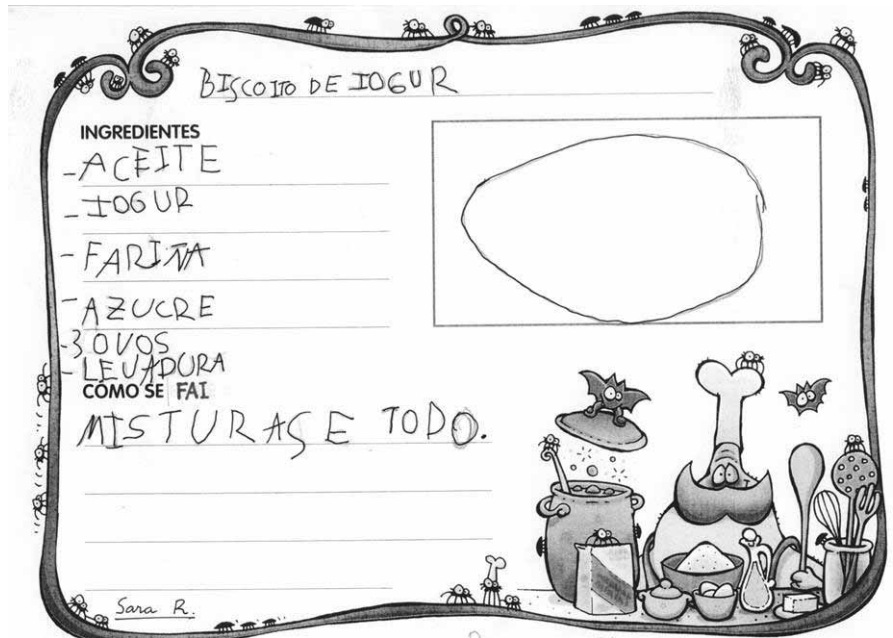 BISCOITO DE IOGUR
INGREDIENTES
-ACEITE
-IOGUR
-FARIÑA
-AZUCRE
-3 OVOS
-LEVADURA
CÓMO SE FAI
MISTURASE TODO.
Sara R.